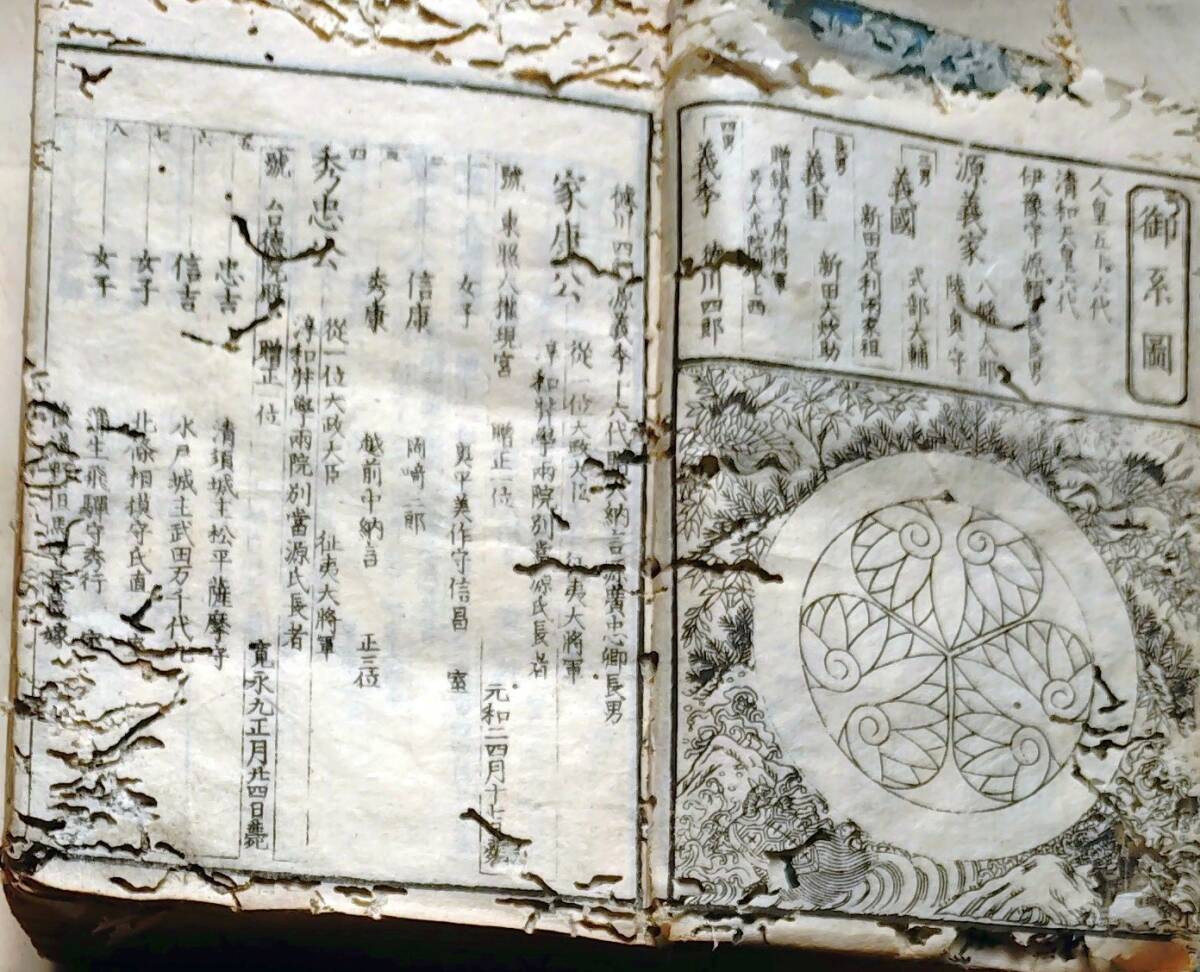 御系圖
人皇五十六代
清和天皇六代
伊豫守源頼義長男
源義家 八幡太郎
陸奥守
三男
義國 式部大輔
新田足利両家祖
長男
義重 新田大炊助
贈鎮守府将軍
四男
義季 徳川四郎
徳川四郎源義季十六代贈大納言源廣忠卿長男
家康公 従一位大政大臣 征夷大将軍
淳和弉學兩院別當源氏長者
號 東照大権現宮 贈正一位 元和二四月十七日薨
一 女子 奥平美作守信昌 室
二 信康 岡崎三郎
三 秀康 越前中納言 正三位
四
秀忠公 従一位大政大臣 征夷大将軍
淳和弉學兩院別當源氏長者
號 台徳院殿 贈正一位 寛永九正月廿四日薨
五 忠吉 清須城主松平薩摩守
六 信吉 水戸城主武田万千代
七 女子 北條相模守氏直
八 女子 蒲生飛騨守秀行 室